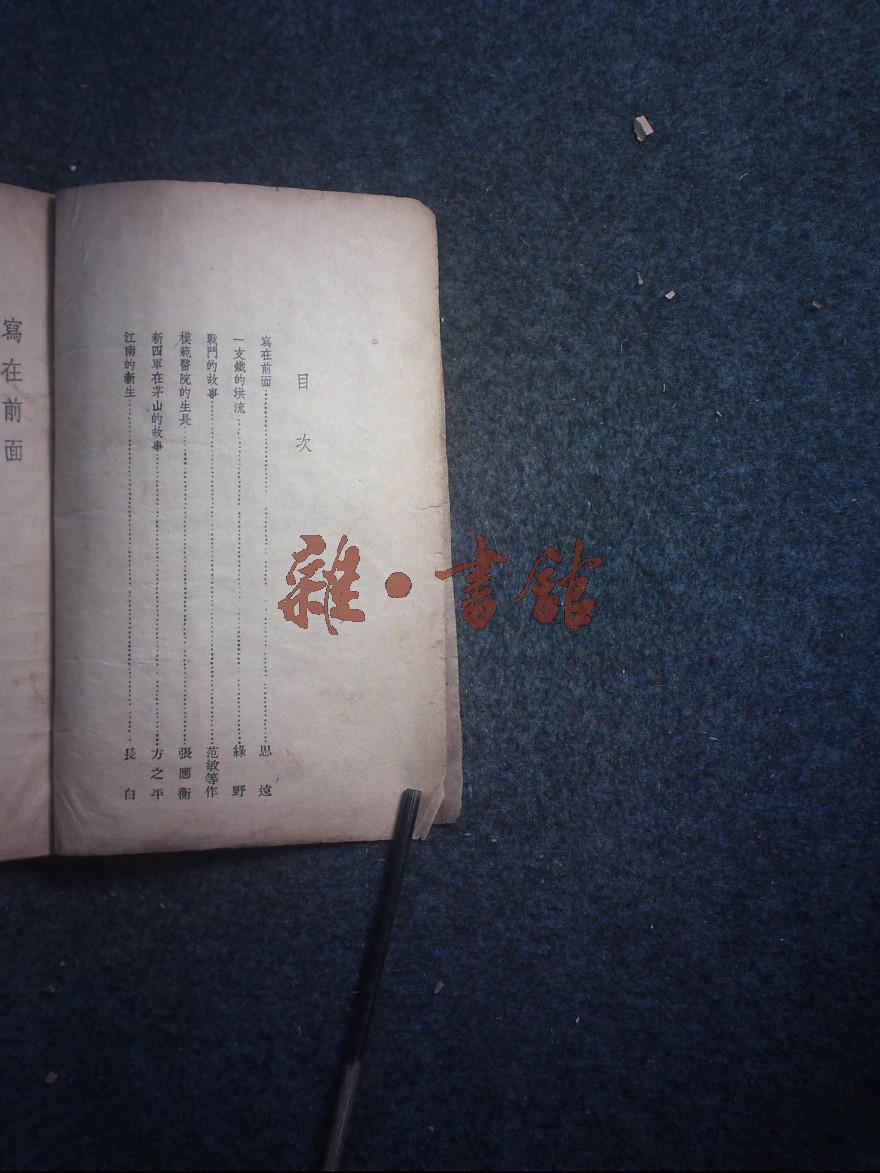 目次
寫在前面……思遠
一支鐵的洪流……綠野
戰鬥的故事……范敏等作
模範醫院的生長……張應衡
新四軍在茅山的故事……方之平
江南的新生……長白
寫在前面
雜·書館